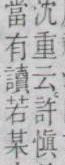 沈重云。許愼
當有讀若某